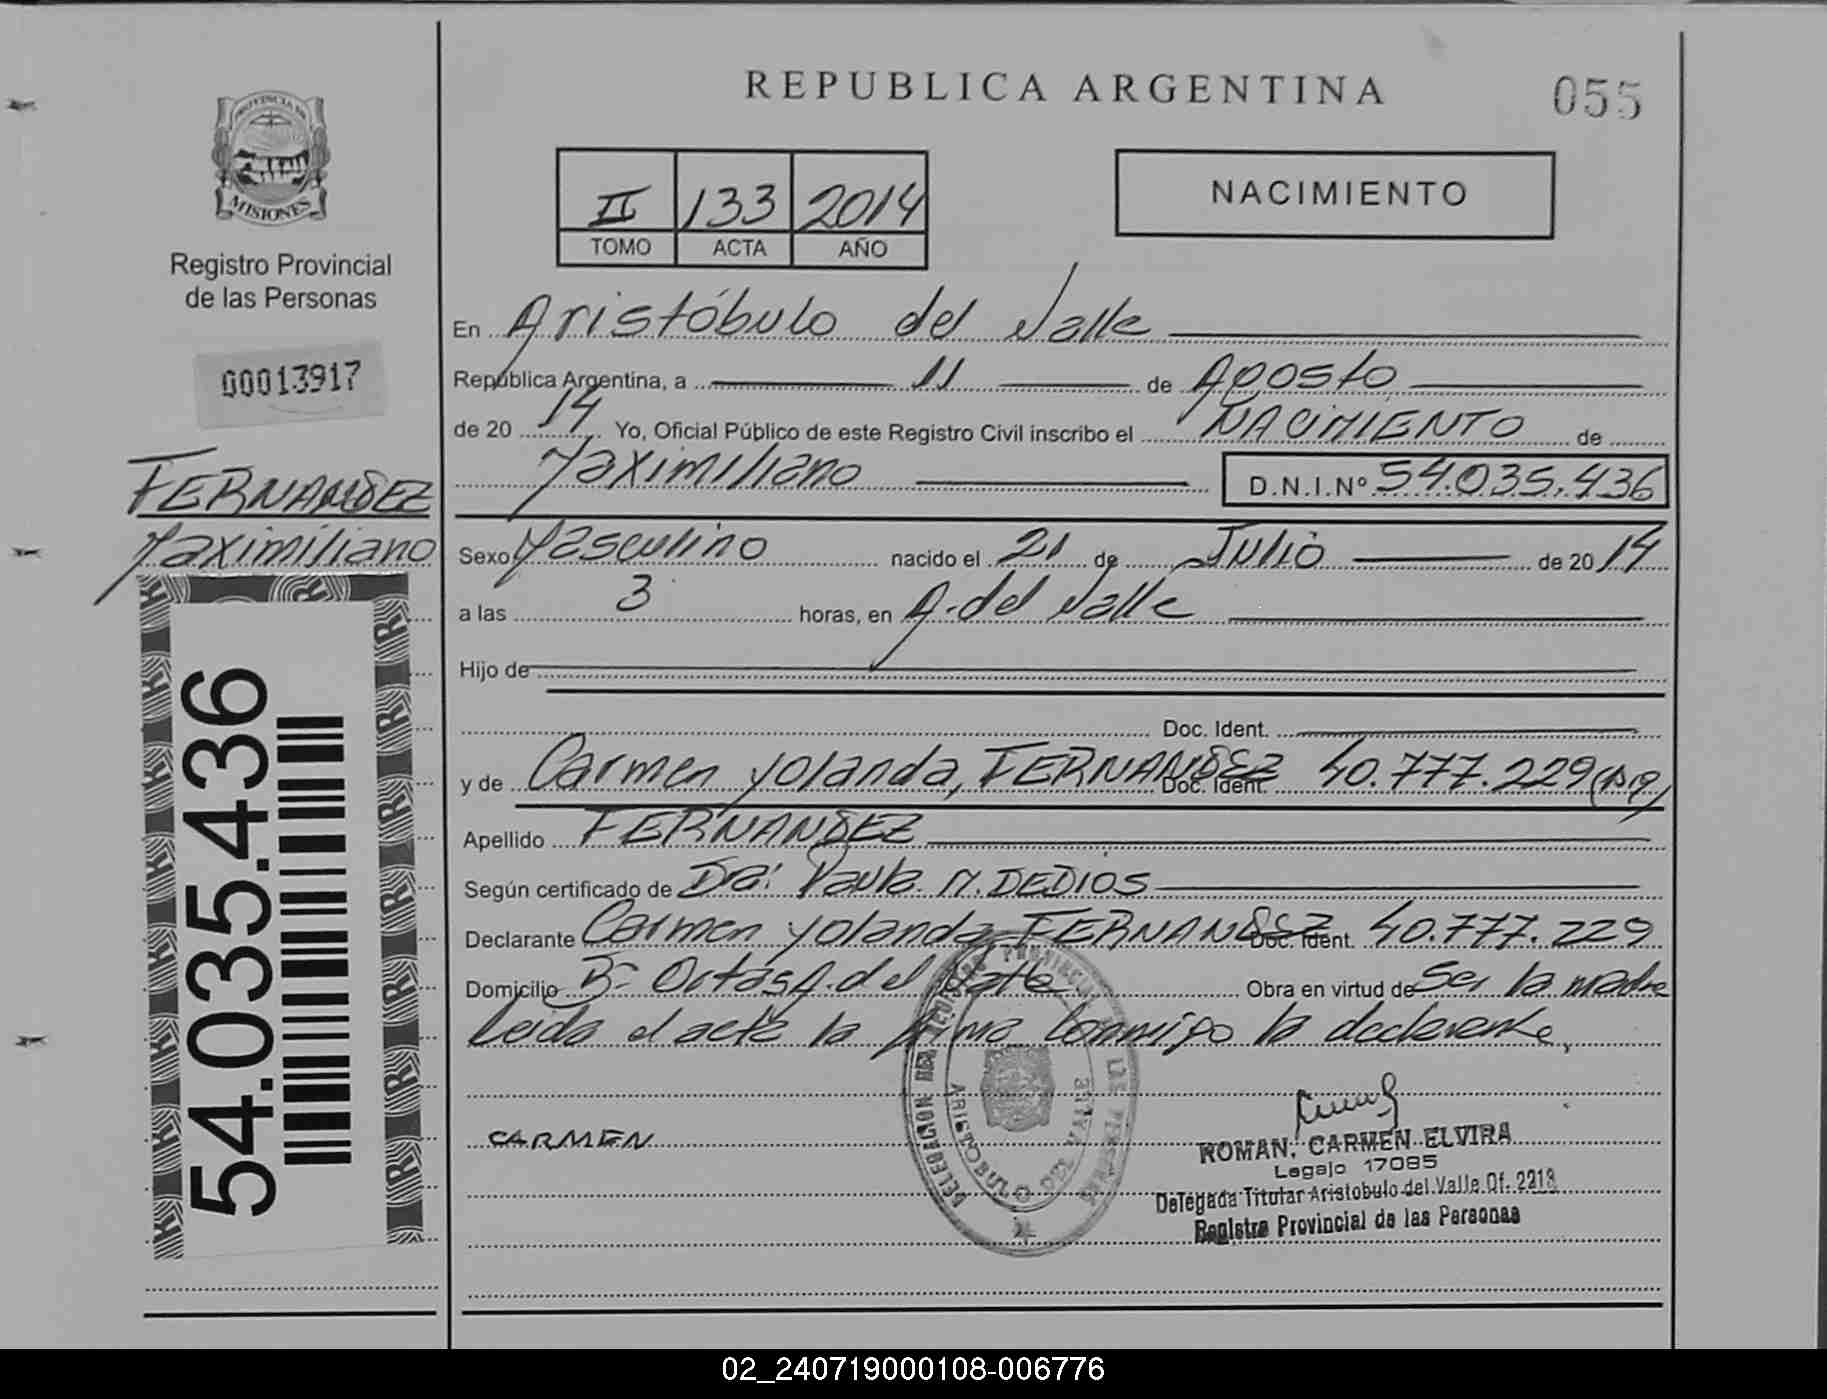 REPUBLICA ARGENTINA
055
PROVINCIA DE
MISIONES
Registro Provincial
de las Personas
00013917
FERNANDEZ
Maximiliano
54.035.436
II 133 2014
TOMO ACTA AÑO
NACIMIENTO
En Aristóbulo del Valle
República Argentina, a 11 de Agosto
de 20 14 Yo, Oficial Público de este Registro Civil inscribo el NACIMIENTO de
Maximiliano D.N.I.Nº 54.035.436
Sexo Masculino nacido el 21 de Julio de 20 14
a las 3 horas, en A. del Valle
Hijo de
Doc. Ident.
y de Carmen Yolanda, FERNANDEZ Doc. Ident. 40.777.229
Apellido FERNANDEZ
Según certificado de Dra: Paula M. DEDIOS
Declarante Carmen Yolanda FERNANDEZ Doc. Ident. 40.777.229
Domicilio Bº A. del Valle Obra en virtud de Ser la madre
Leída el acta la firma conmigo la declarante,
CARMEN
DELEGACION DEL REGISTRO PROVINCIAL DE LAS PERSONAS
ARISTOBULO DEL VALLE
ROMAN, CARMEN ELVIRA
Legajo 17085
Delegada Titular Aristobulo del Valle Of. 2213
Registro Provincial de las Personas
02_240719000108-006776